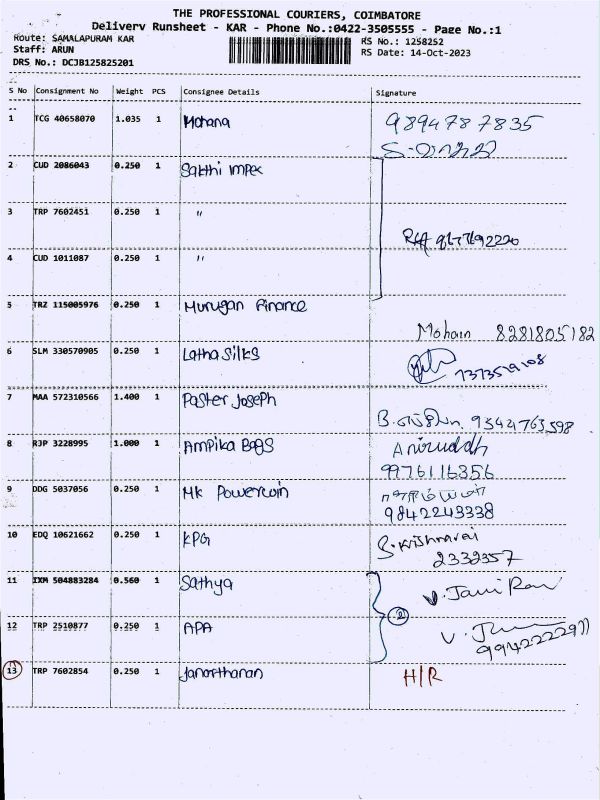 THE PROFESSIONAL COURIERS, COIMBATORE
Delivery Runsheet - KAR - Phone No.:0422-3505555 - Page No.:1
Route: SAMALAPURAM KAR
RS No.: 1258252
Staff: ARUN
RS Date: 14-Oct-2023
DRS No.: DCJB125825201
S No Consignment No Weight PCS Consignee Details Signature
1 TCG 40658070 1.035 1 Mohana 9894787835
2 CUD 2086043 0.250 1 Sakthi Impex
3 TRP 7602451 0.250 1 "
4 CUD 1011087 0.250 1 "
5 TRZ 115005976 0.250 1 Murugan Finance
Mohain 8281805182
6 SLM 330570905 0.250 1 Latha Silks
7 MAA 572310566 1.400 1 Paster Joseph
B. 9344763598
8 RJP 3228995 1.000 1 Ampika Bags Aniruddh
9976116356
9 DDG 5037056 0.250 1 Mk Powerwin
9842243338
10 EDQ 10621662 0.250 1 KPG S. Krishnaraj
2332357
11 IXM 504883284 0.560 1 Sathya
(2)
12 TRP 2510877 0.250 1 APA
13 TRP 7602854 0.250 1 Janarthanan H/R